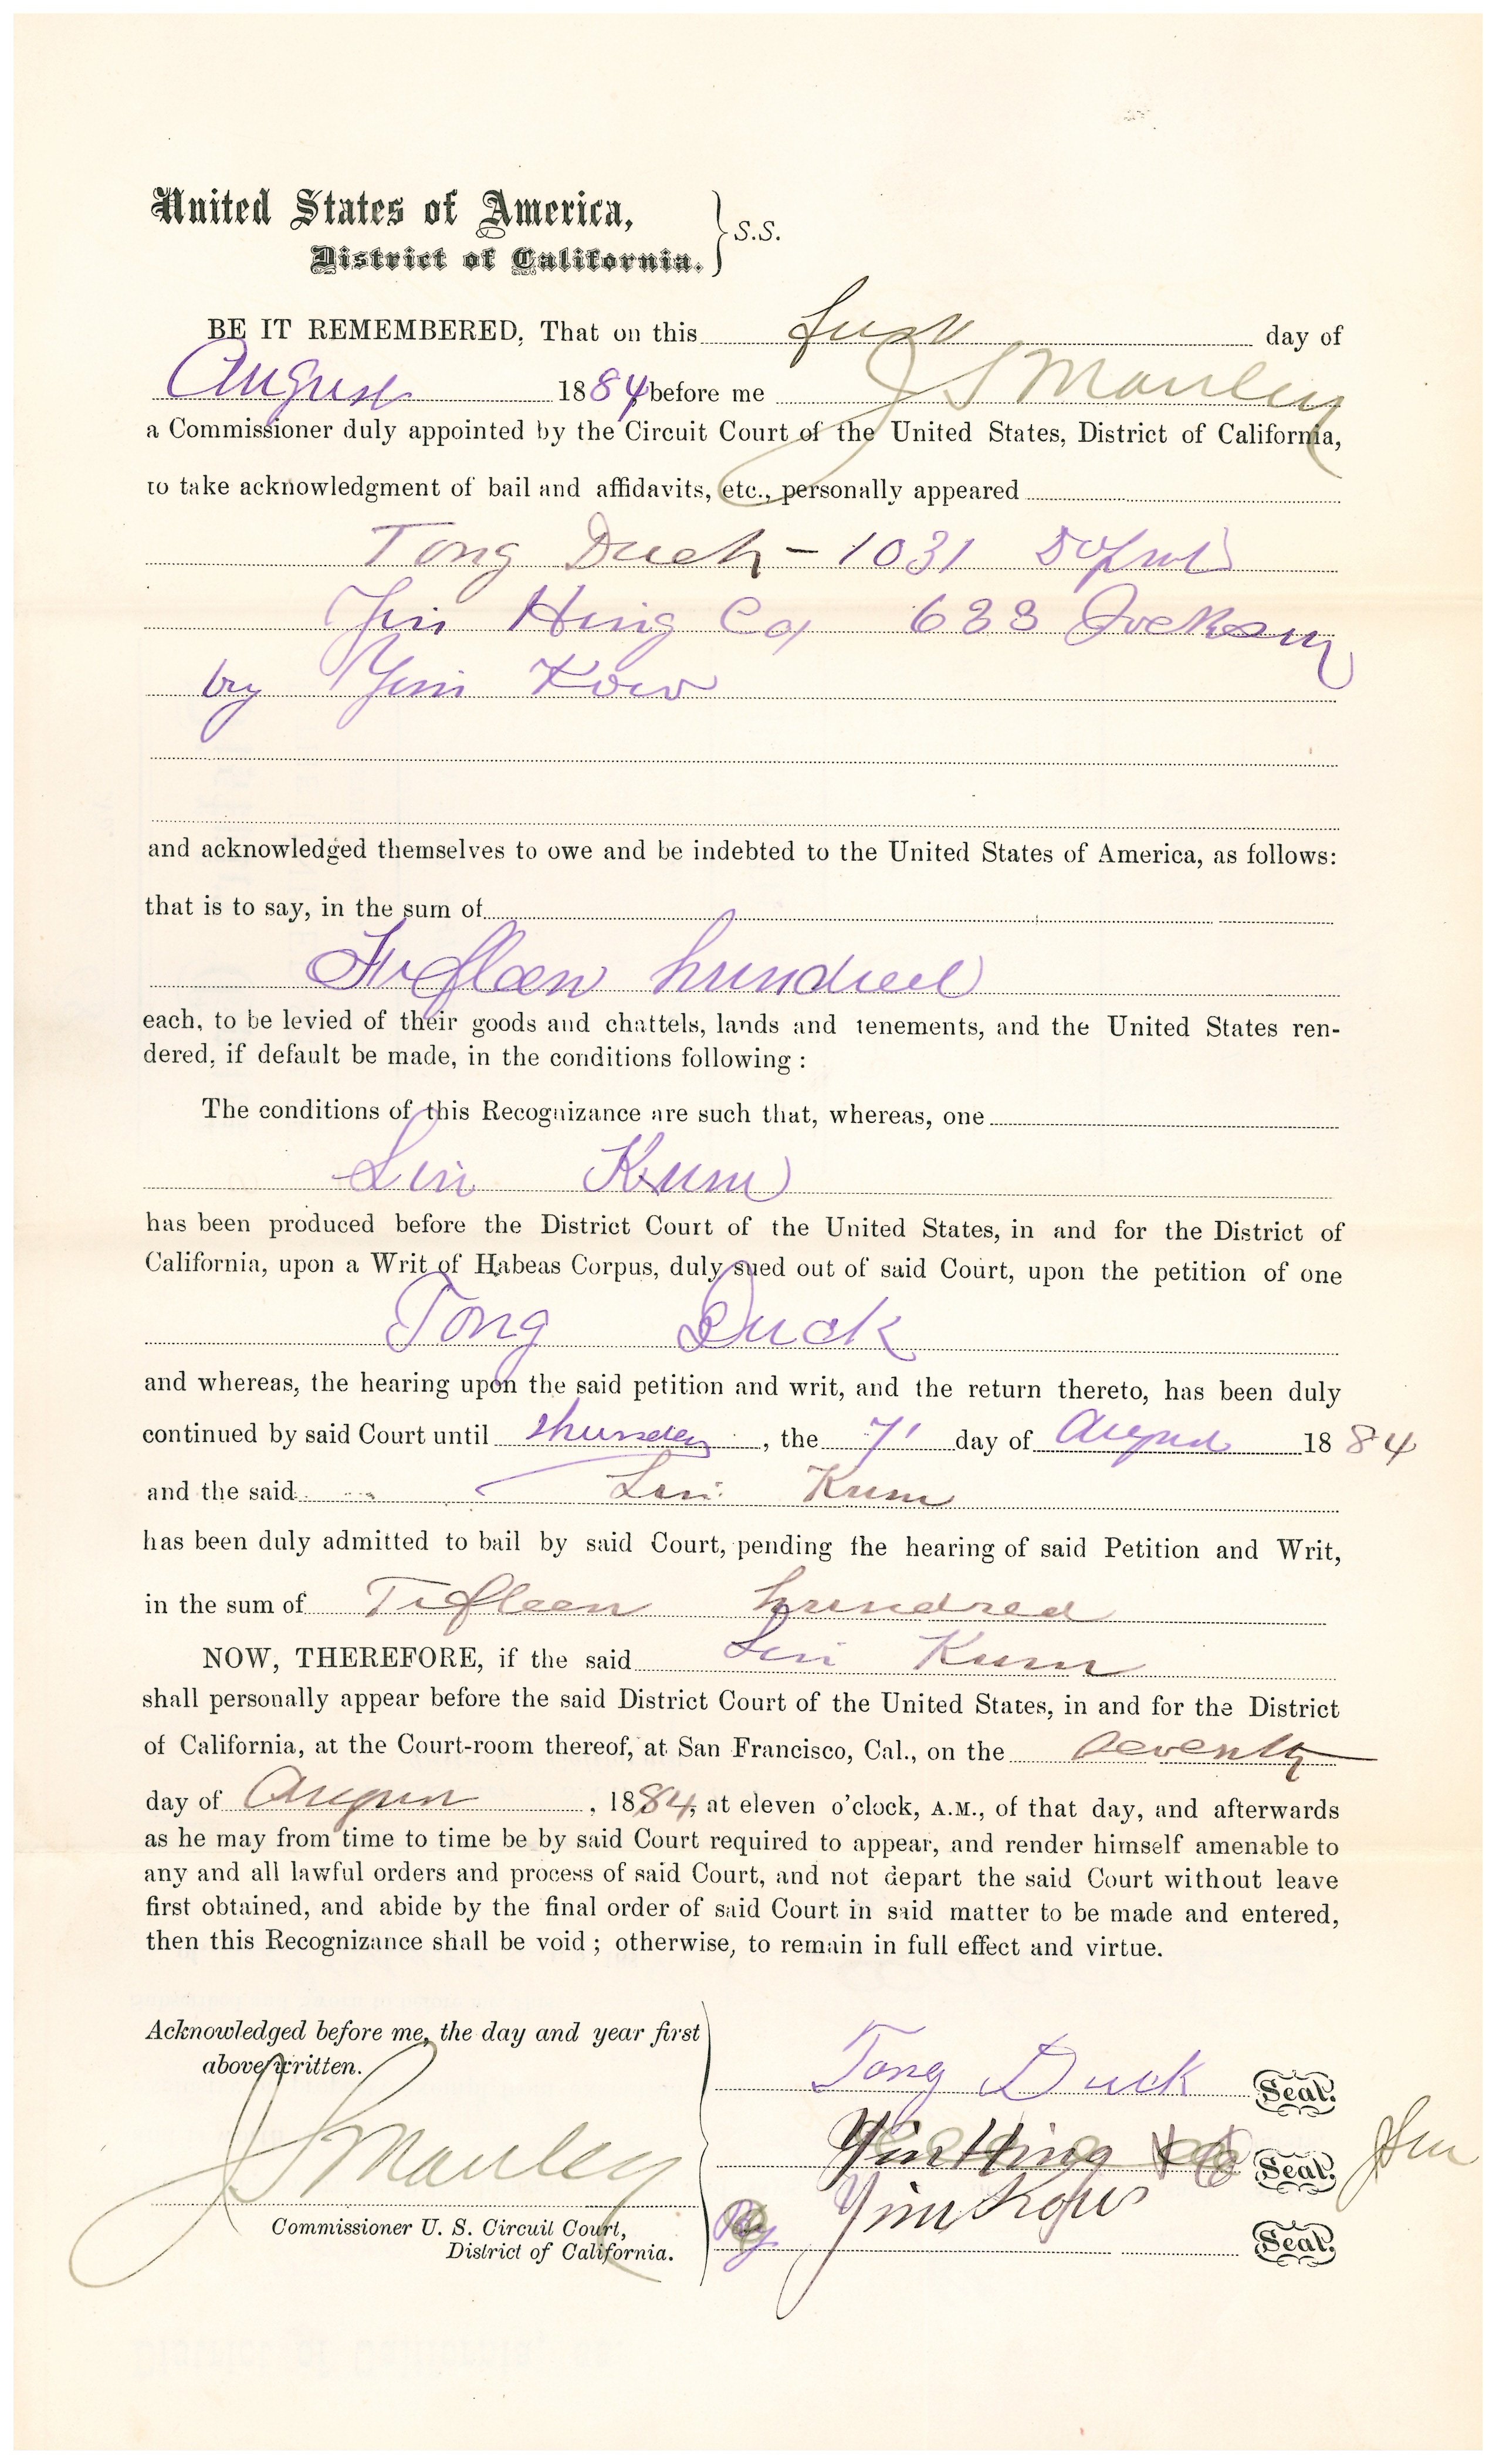 United States of America,
District of California. } S.S.
BE IT REMEMBERED, That on this first day of
August 1884 before me J S Manley
a Commissioner duly appointed by the Circuit Court of the United States, District of California,
to take acknowledgment of bail and affidavits, etc., personally appeared
Tong Duck - 1031 Dupont
Yin Hing Co 633 Jackson
by Yim Kow
and acknowledged themselves to owe and be indebted to the United States of America, as follows:
that is to say, in the sum of
Fifteen hundred
each, to be levied of their goods and chattels, lands and tenements, and the United States ren-
dered, if default be made, in the conditions following :
The conditions of this Recognizance are such that, whereas, one
Lin Kum
has been produced before the District Court of the United States, in and for the District of
California, upon a Writ of Habeas Corpus, duly sued out of said Court, upon the petition of one
Tong Duck
and whereas, the hearing upon the said petition and writ, and the return thereto, has been duly
continued by said Court until Thursday, the 7' day of August 1884
and the said Lin Kum
has been duly admitted to bail by said Court, pending the hearing of said Petition and Writ,
in the sum of Fifteen hundred
NOW, THEREFORE, if the said Lin Kum
shall personally appear before the said District Court of the United States, in and for the District
of California, at the Court-room thereof, at San Francisco, Cal., on the Seventh
day of August, 1884, at eleven o'clock, A.M., of that day, and afterwards
as he may from time to time be by said Court required to appear, and render himself amenable to
any and all lawful orders and process of said Court, and not depart the said Court without leave
first obtained, and abide by the final order of said Court in said matter to be made and entered,
then this Recognizance shall be void ; otherwise, to remain in full effect and virtue.
Acknowledged before me, the day and year first
above written.
Tong Duck Seal.
Yin Hing Co Seal.
J S Manley
By Yim Kow Seal.
Commissioner U. S. Circuit Court,
District of California.